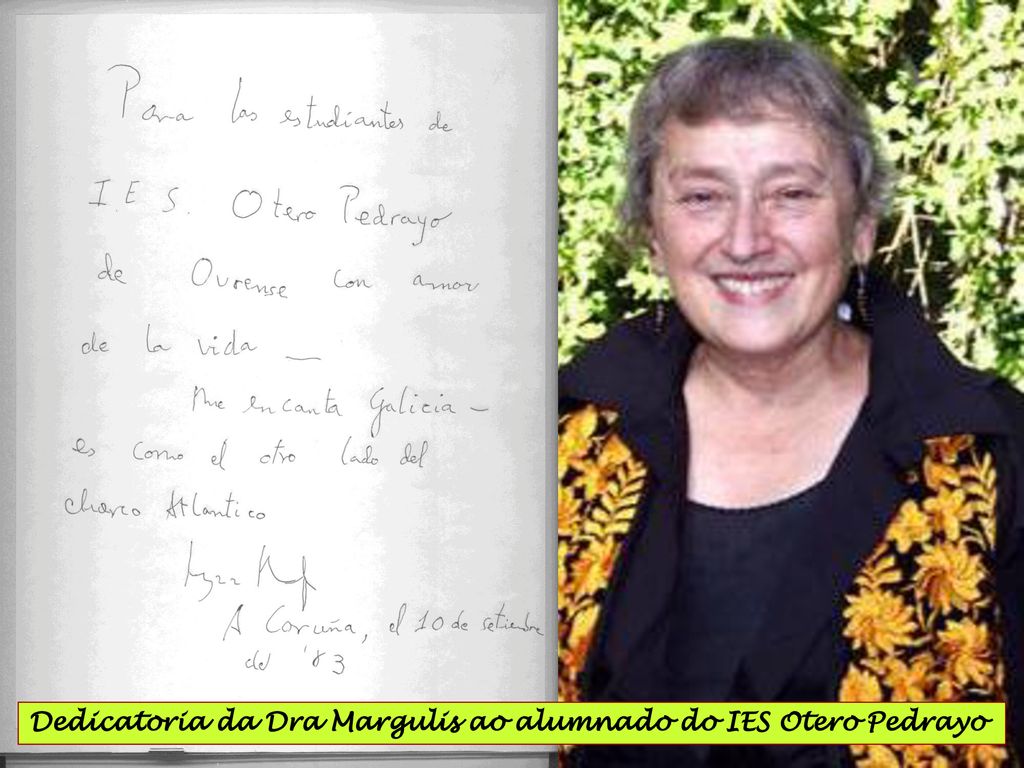 Para los estudiantes de
I.E S. Otero Pedrayo
de Ourense con amor
de la vida —
Me encanta Galicia —
es como el otro lado del
charco Atlantico
A Coruña, el 10 de setiembre
del '83
Dedicatoria da Dra Margulis ao alumnado do IES Otero Pedrayo